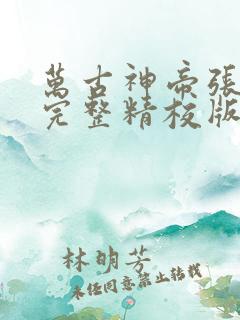 萬古神帝張
完整精校版
林明芳
未經同意禁止轉載